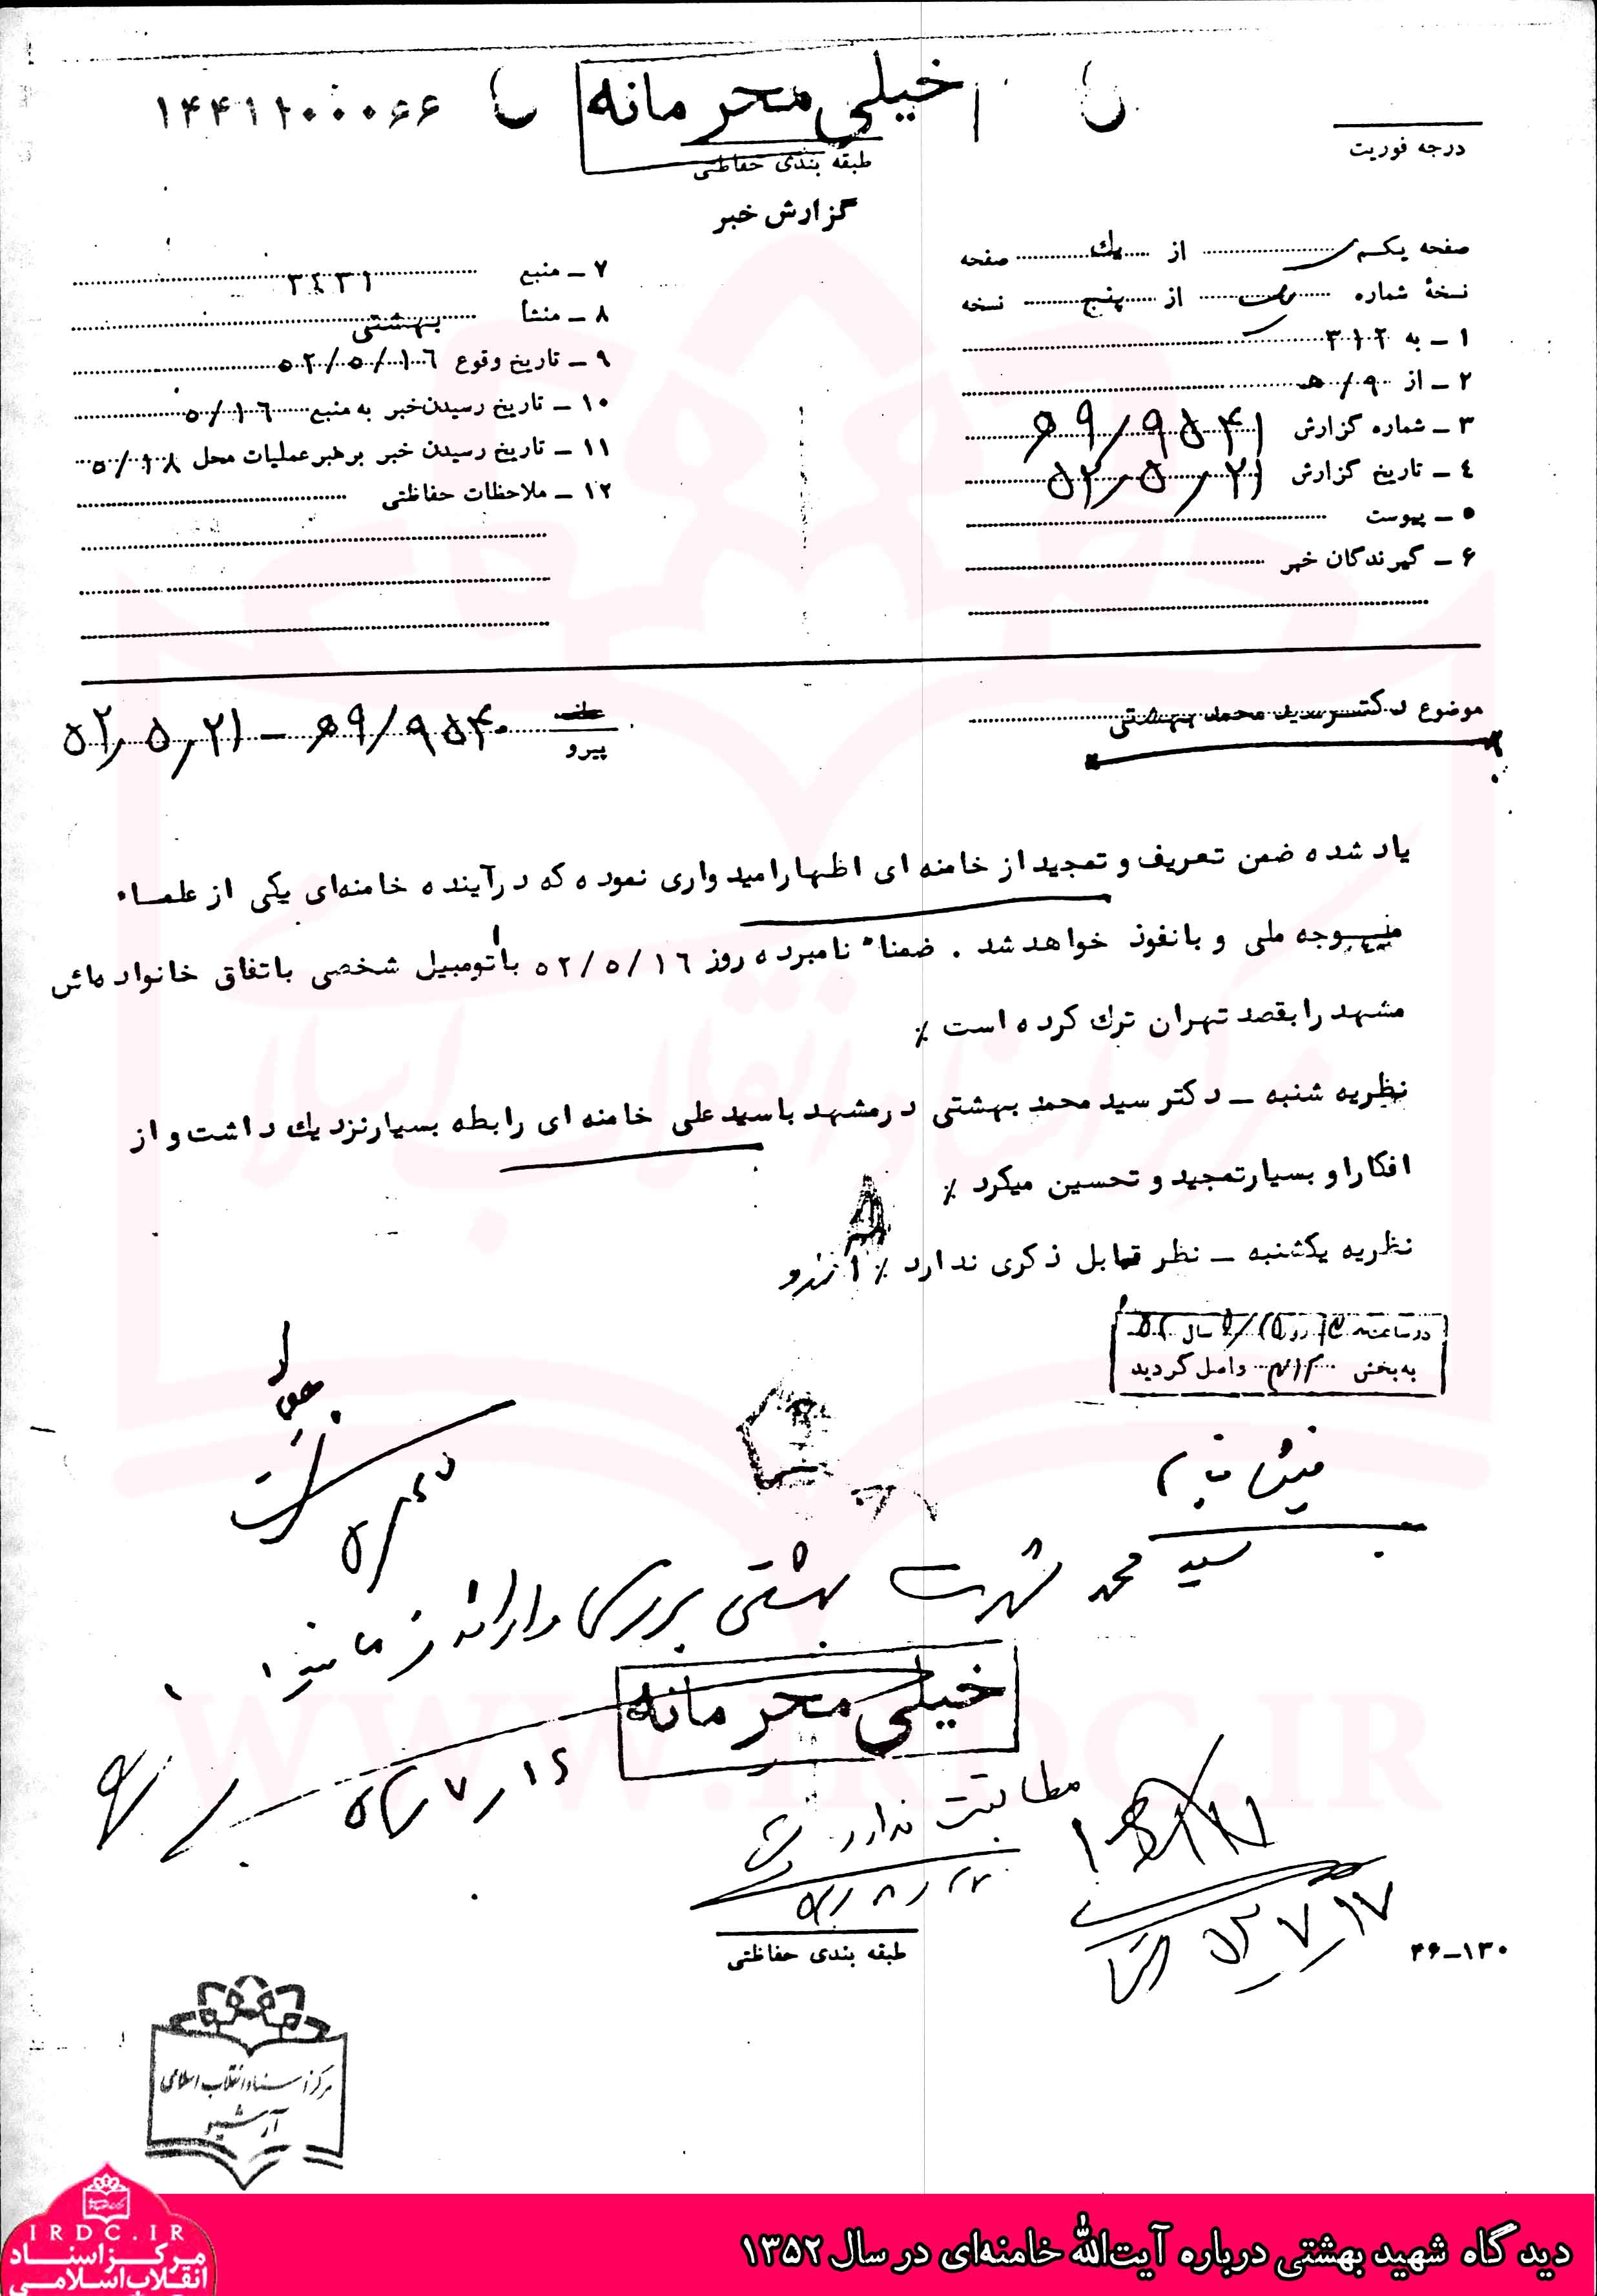 خیلی محرمانه
۱۴۴۱۲۰۰۰۶۶
درجه فوریت
طبقه بندی حفاظتی
گزارش خبر
صفحه یکم از یك صفحه
نسخهٔ شماره از پنج نسخه
۱ - به ۳۱۲
۲ - از ۹/ﻫ
۳ - شماره گزارش ۹۵۴۱/ﻫ۹
۴ - تاریخ گزارش ۵۲٫۵٫۲۱
۵ - پیوست
۶ - گیرندگان خبر
۷ - منبع ۳۴۳۱
۸ - منشأ بهشتی
۹ - تاریخ وقوع ۵۲/۵/۱۶
۱۰ - تاریخ رسیدن خبر به منبع ۵/۱۶
۱۱ - تاریخ رسیدن خبر برهبر عملیات محل ۵/۱۸
۱۲ - ملاحظات حفاظتی
موضوع دکتر سید محمد بهشتی
پیرو ۹۵۴۰/ﻫ۹ - ۵۲٫۵٫۲۱
یاد شده ضمن تعریف و تمجید از خامنه ای اظهار امیدواری نموده که در آینده خامنه‌ای یکی از علماء
متوجه ملی و بانفوذ خواهد شد . ضمنا" نامبرده روز ۵۲/۵/۱۶ با اتومبیل شخصی باتفاق خانواده‌اش
مشهد را بقصد تهران ترك کرده است ٪
نظریه شنبه - دکتر سید محمد بهشتی در مشهد با سید علی خامنه ای رابطه بسیار نزدیك داشت و از
افکار او بسیار تمجید و تحسین میکرد ٪
نظریه یکشنبه - نظر قابل ذکری ندارد ٪
در ساعت روز سال ۵۲
به بخش ۳۱۲ واصل گردید
سید محمد شهرت بهشتی بررسی و ارائه فرمائید
خیلی محرمانه
۵۲٫۷٫۱۶
مطابقت ندارد
۵۲٫۷٫۱۷
طبقه بندی حفاظتی
۴۶-۱۳۰
مرکز اسناد انقلاب اسلامی
آرشیو
IRDC.IR
مرکز اسناد
انقلاب اسلامی
دیدگاه شهید بهشتی درباره آیت‌الله خامنه‌ای در سال ۱۳۵۲
مرکز اسناد انقلاب اسلامی
WWW.IRDC.IR